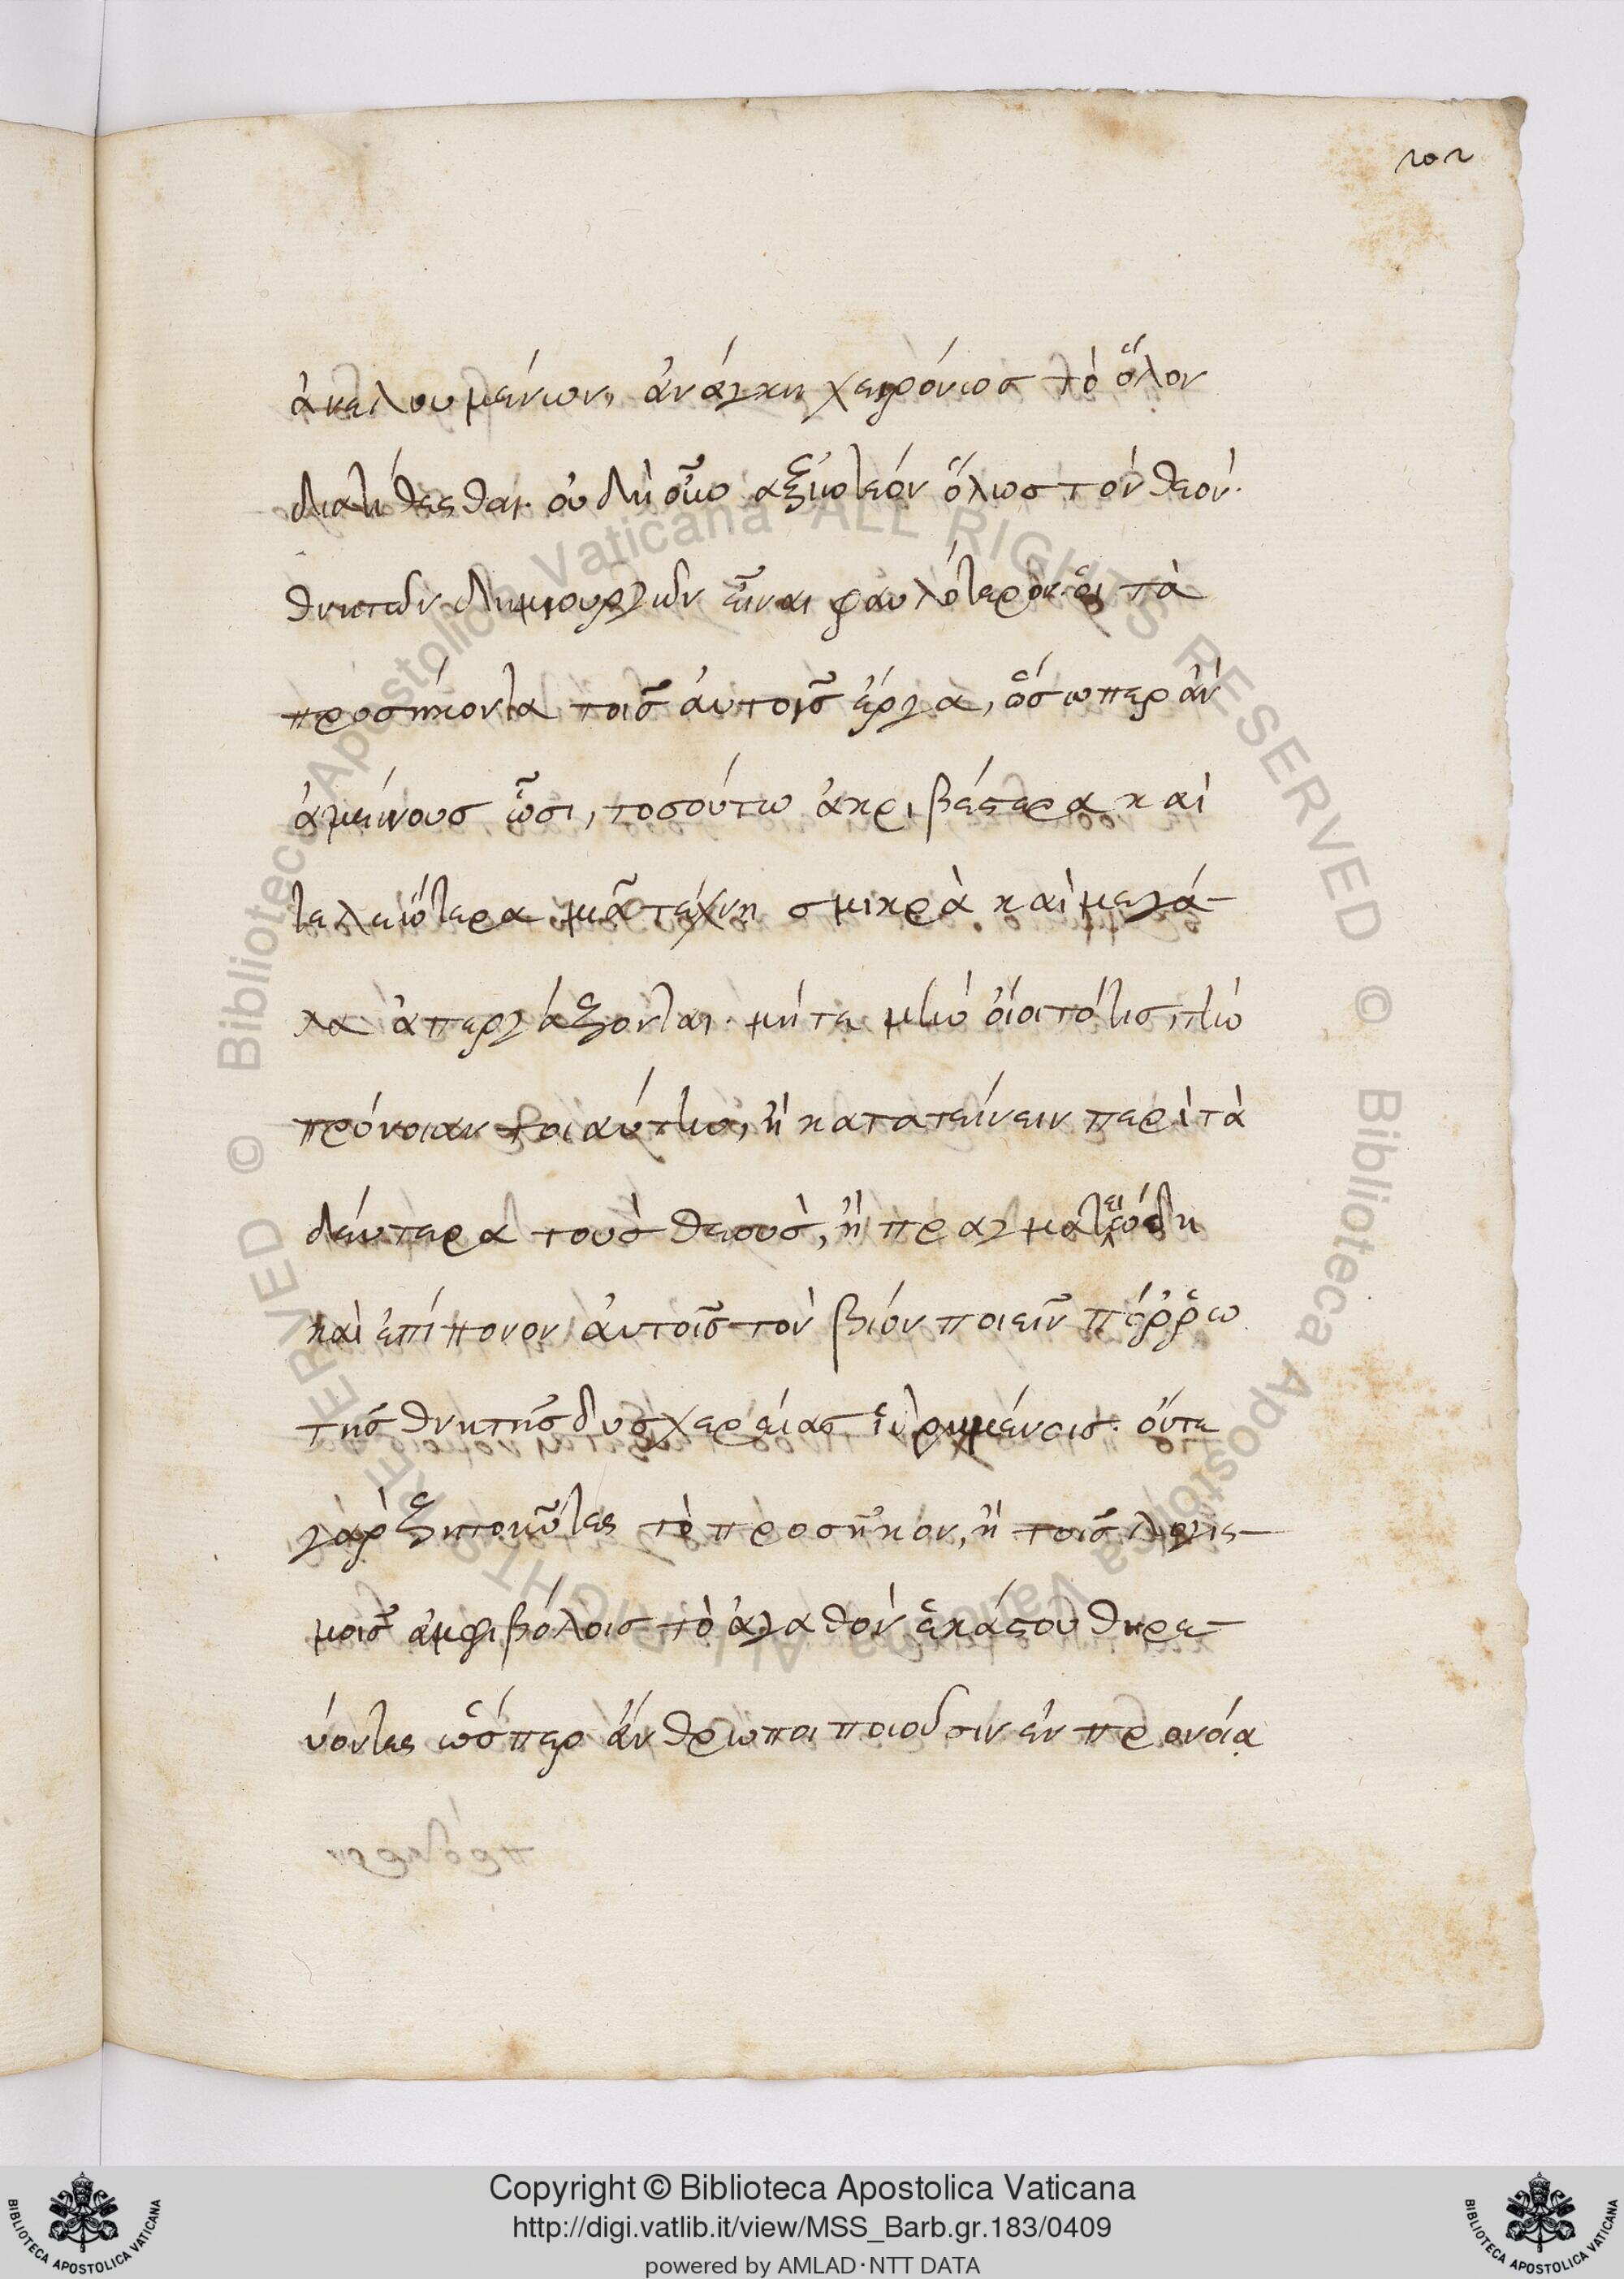 202
ἀμελουμένων, ἀνάγκη χειρόνως τὸ ὅλον
διατίθεσθαι. οὐ δὴ οὖν ἀξιωτεόν ὅλως τὸν θεον.
θνητῶν δημιουργῶν εἶναι φαυλότερον. οἱ τὰ
προσήκοντα τοῖς ἀυτοῖς ἔργα, ὅσωπερ ἂν
ἀμείνους ὦσι, τοσούτω ἀκριβέστερα καὶ
τελειότερα μιᾶ τέχνη σμικρὰ καὶ μεγά-
λα ἀπεργάζονται. μήτε μὴν ὀίοιτό τις, τὴν
πρόνοιαν τοιαύτην, ἢ κατατείνειν περὶ τὰ
δέυτερα τοὺς θεοὺς, ἢ πραγματειώδη
καὶ ἐπίπονον ἀυτοῖς τὸν βίον ποιεῖν πόῤῥω
τῆς θνητῆς δυσχερείας ἱδρυμένοις. όυτε
γὰρ ζητοῦντες τὸ προσῆκον, ἢ τοῖς λογισ-
μοῖς ἀμφιβόλοις τὸ ἀγαθὸν ἑκάστου θηρε-
ύοντες ὥσπερ ἄνθρωποι ποιοῦσιν ἐν προνοία
Copyright © Biblioteca Apostolica Vaticana
http://digi.vatlib.it/view/MSS_Barb.gr.183/0409
powered by AMLAD·NTT DATA
BIBLIOTECA APOSTOLICA VATICANA
BIBLIOTECA APOSTOLICA VATICANA
© Biblioteca Apostolica Vaticana ALL RIGHTS RESERVED © Biblioteca Apostolica Vaticana ALL RIGHTS RESERVED